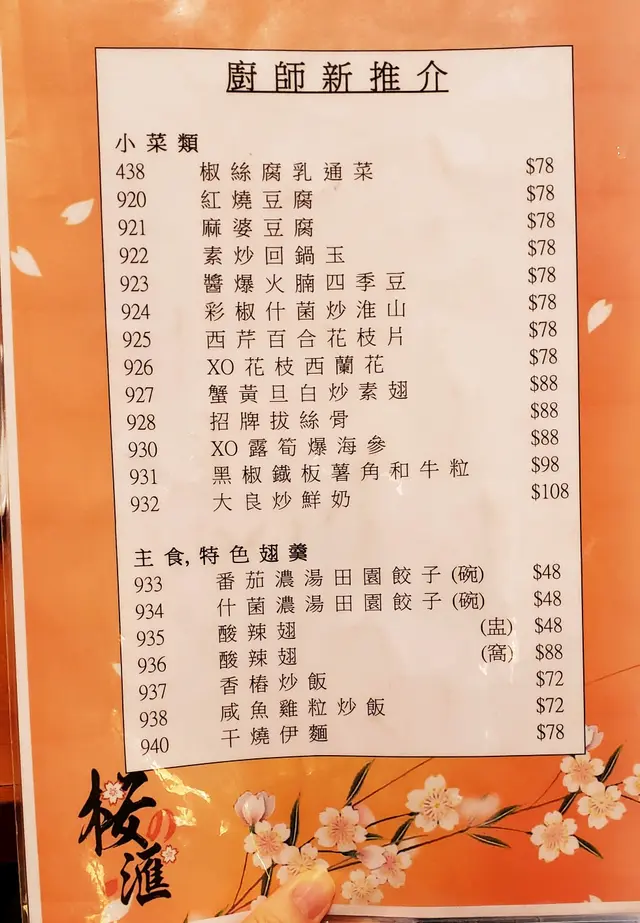 廚師新推介
小菜類
438 椒絲腐乳通菜 $78
920 紅燒豆腐 $78
921 麻婆豆腐 $78
922 素炒回鍋玉 $78
923 醬爆火腩四季豆 $78
924 彩椒什菌炒淮山 $78
925 西芹百合花枝片 $78
926 XO花枝西蘭花 $78
927 蟹黃旦白炒素翅 $88
928 招牌拔絲骨 $88
930 XO露筍爆海參 $88
931 黑椒鐵板薯角和牛粒 $98
932 大良炒鮮奶 $108
主食,特色翅羹
933 番茄濃湯田園餃子(碗) $48
934 什菌濃湯田園餃子(碗) $48
935 酸辣翅 (盅) $48
936 酸辣翅 (窩) $88
937 香椿炒飯 $72
938 咸魚雞粒炒飯 $72
940 干燒伊麵 $78
桜の滙